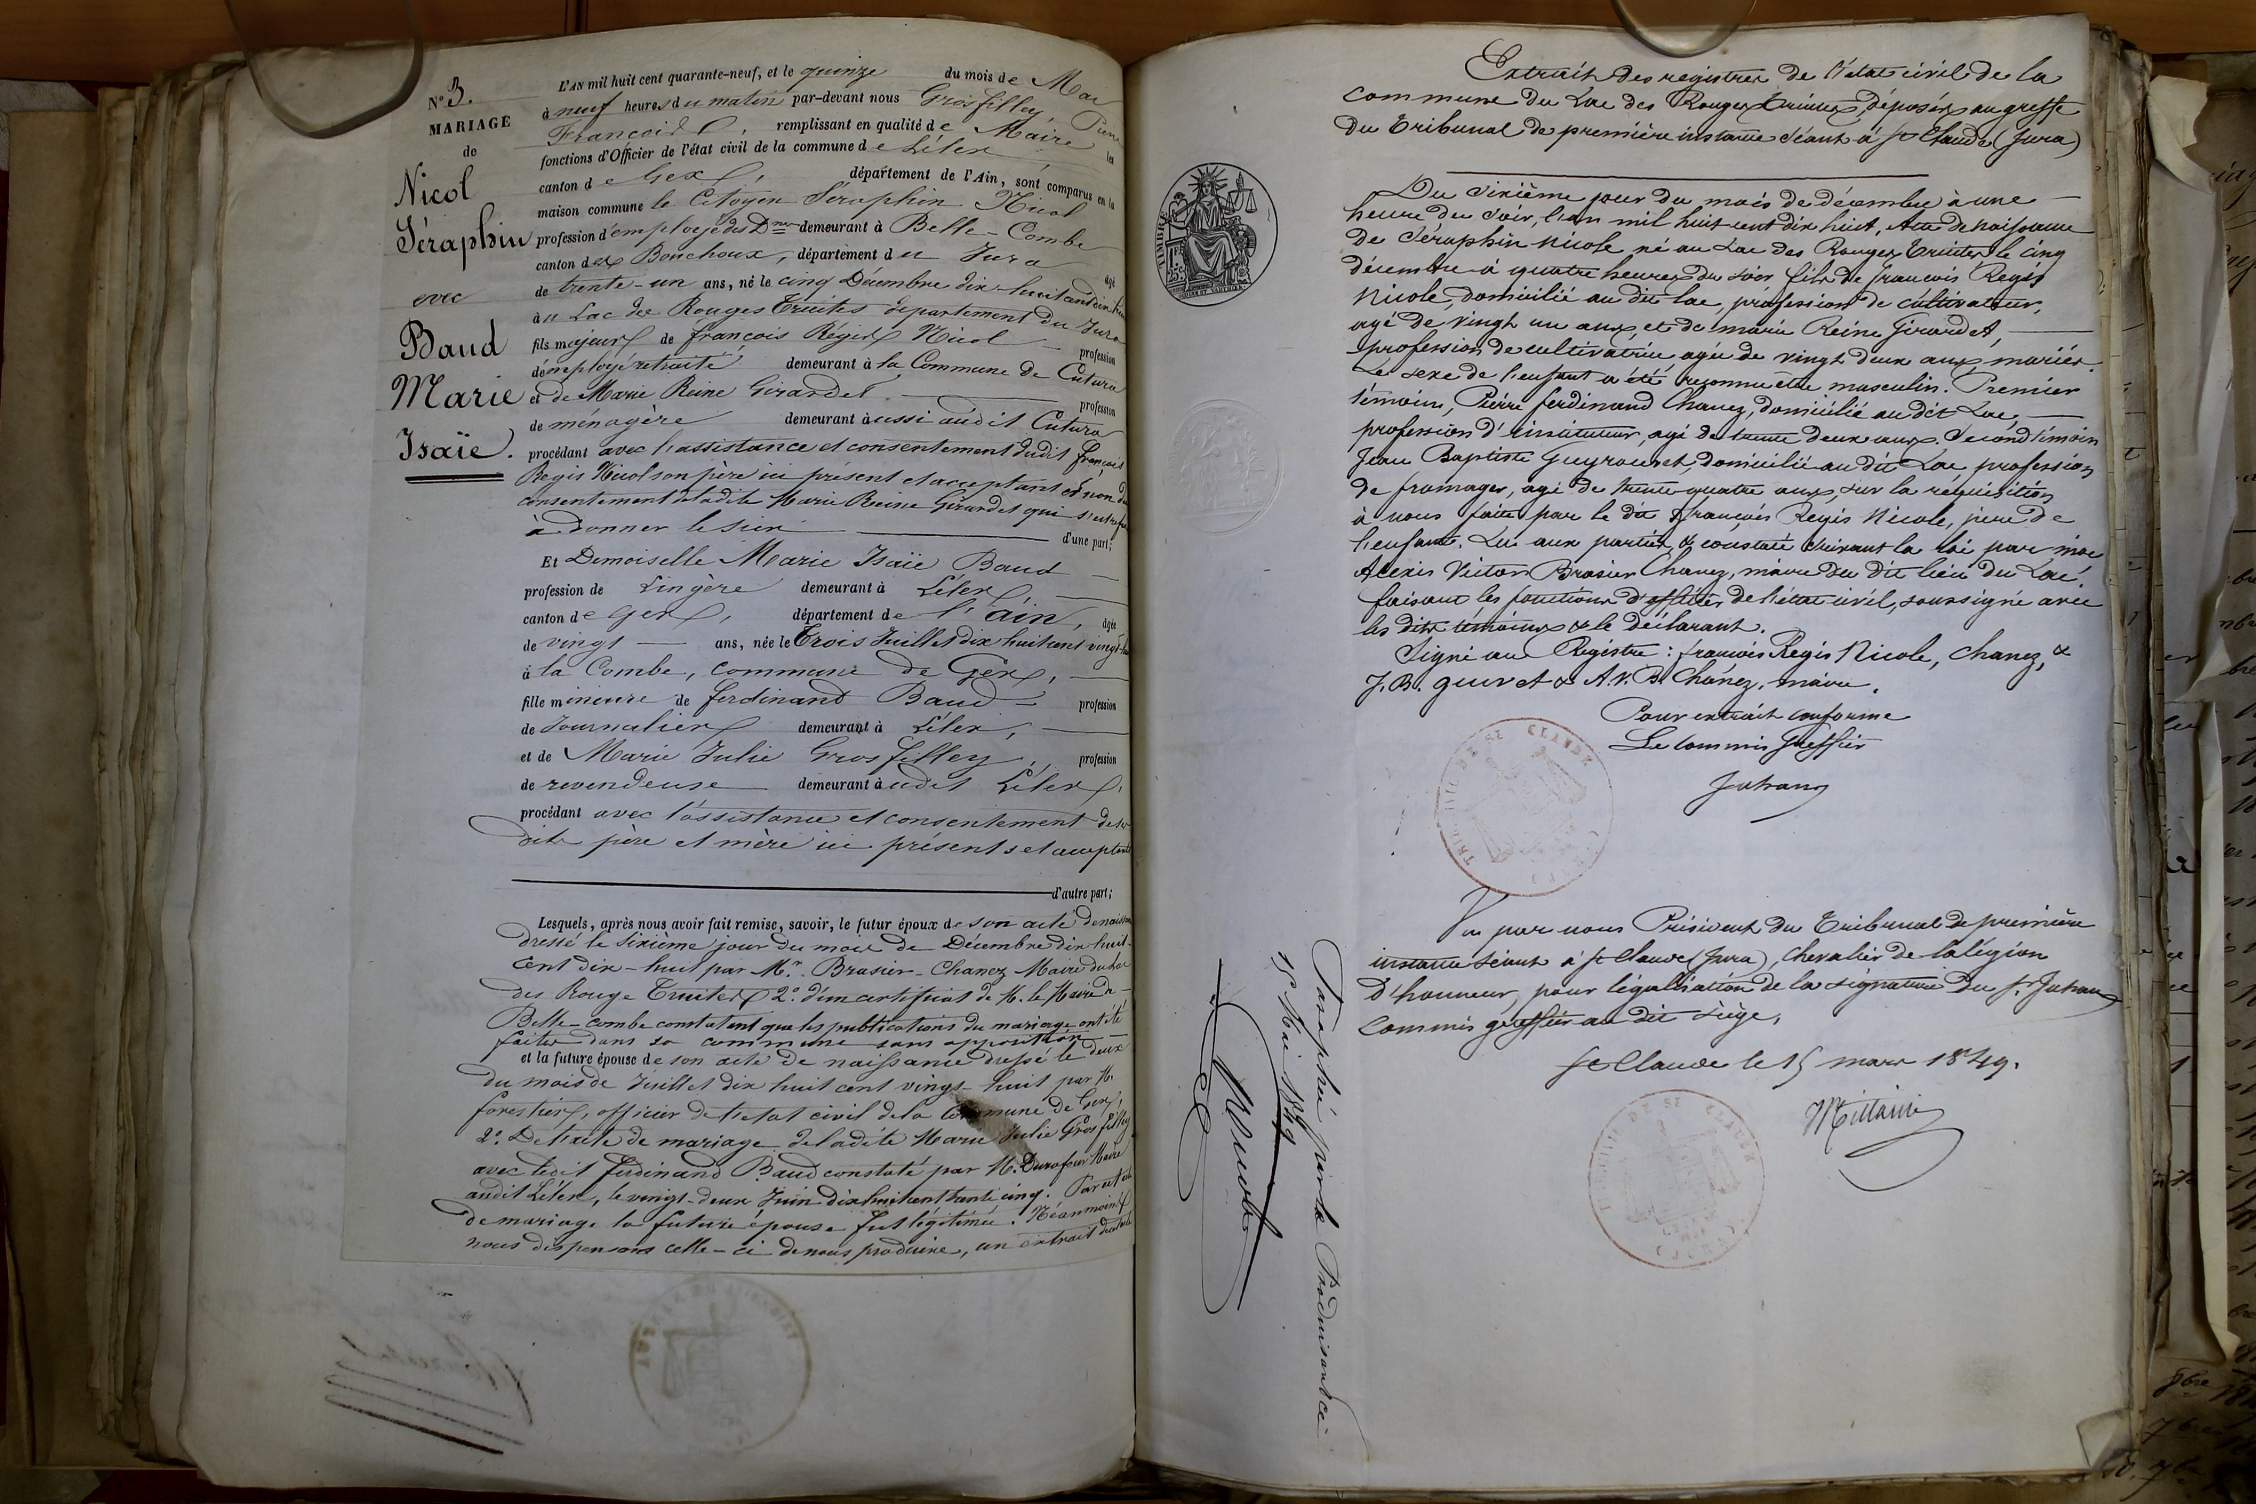 N° 3.
MARIAGE
de
Nicol
Séraphin
avec
Baud
Marie
Isaïe.
L'AN mil huit cent quarante-neuf, et le quinze du mois de Mai
à neuf heures du matin par-devant nous Grosfilley, Pierre
François, remplissant en qualité de Maire les
fonctions d'Officier de l'état civil de la commune de Lélex
canton de Gex, département de l'Ain, sont comparus en la
maison commune le Citoyen Séraphin Nicol
profession d'employé des D.nes demeurant à Belle-Combe
canton des Bouchoux, département du Jura âgé
de trente-un ans, né le cinq Décembre dix-huit cent dix-huit
au Lac des Rouges Truites département du Jura
fils majeur de françois Régis Nicol profession
d'employé retraité demeurant à la Commune de Cutura
et de Marie Reine Girardet profession
de ménagère demeurant à aussi audit Cutura
procédant avec l'assistance et consentement dudit françois
Regis Nicol son père ici présent et acceptant et non du
consentement de ladite Marie Reine Girardet qui
à donner le sien d'une part;
Et Demoiselle Marie Isaïe Baud
profession de Lingère demeurant à Lélex,
canton de Gex, département de l'Ain, âgée
de vingt ans, née le Trois Juillet dix huit cent vingt-huit
à la Combe, commune de Gex,
fille mineure de ferdinand Baud profession
de Journalier demeurant à Lélex,
et de Marie Julie Grosfilley, profession
de revendeuse demeurant audit Lélex,
procédant avec l'assistance et consentement de ses
dits père et mère ici présents et acceptants
d'autre part;
Lesquels, après nous avoir fait remise, savoir, le futur époux de son acte de naissance
dressé le sixième jour du mois de Décembre dix huit-
cent dix-huit par M.r Brasier-Chanez Maire du Lac
des Rouge Truites 2.° d'un certificat de M. le Maire de
Belle-combe constatant que les publications du mariage ont été
faites dans sa commune sans opposition
et la future épouse de son acte de naissance dressé le deux
du mois de Juillet dix huit cent vingt-huit par M.
forestier, officier de l'état civil de la Commune de Gex,
2.° De l'acte de mariage de ladite Marie Julie Grosfilley
avec ledit ferdinand Baud constaté par M. Duraffour Maire
audit Lélex, le vingt-deux Juin dix huit cent trente cinq. Par cet acte
de mariage la future épouse fut légitimée. Néanmoins
nous dispensons celle-ci de nous produire, un extrait
Extrait des registres de l'état civil de la
commune du Lac des Rouges truites, déposés au greffe
du tribunal de première instance séant à St Claude (Jura)
TIMBRE
Du sixième jour du mois de décembre à une
heure du soir, l'an mil huit cent dix huit, Acte de naissance
de Séraphin Nicole né au Lac des Rouges truites le cinq
décembre à quatre heures du soir fils de françois Regis
Nicole, domicilié au dit lac, profession de cultivateur,
agé de vingt un ans, et de marie Reine Girardet,
profession de cultivatrice agée de vingt deux ans, mariés.
Le sexe de l'enfant a été reconnu être masculin. Premier
témoin, Pierre ferdinand Chanez, domicilié au dit Lac,
profession d'instituteur agé de trente deux ans. Second témoin
Jean Baptiste Guyrouvet, domicilié au dit Lac profession
de fromager, agé de trente quatre ans, sur la réquisition
à nous faite par le dit françois Regis Nicole, père de
l'enfant. Lu aux parties & constaté suivant la loi par moi
Alexis Victor Brasier Chanez, maire du dit lieu du Lac.
faisant les fonctions d'officier de l'état civil, soussigné avec
les dits témoins & le déclarant.
Signé au Régistre : françois Regis Nicole, Chanez, &
J.B. guivet & A.V.B. Chanez, maire.
Pour extrait conforme
Le commis greffier
Juhan
TRIBUNAL DE ST CLAUDE
(JURA)
Vu par nous Président du Tribunal de première
instance séant à St Claude (Jura), Chevalier de la légion
d'honneur, pour légalisation de la signature du Sr Juhan
commis greffier au dit siège,
St Claude le 15 mars 1849.
TRIBUNAL DE ST CLAUDE
(JURA)
Paraphé par la Produisante
15 Mai 1849